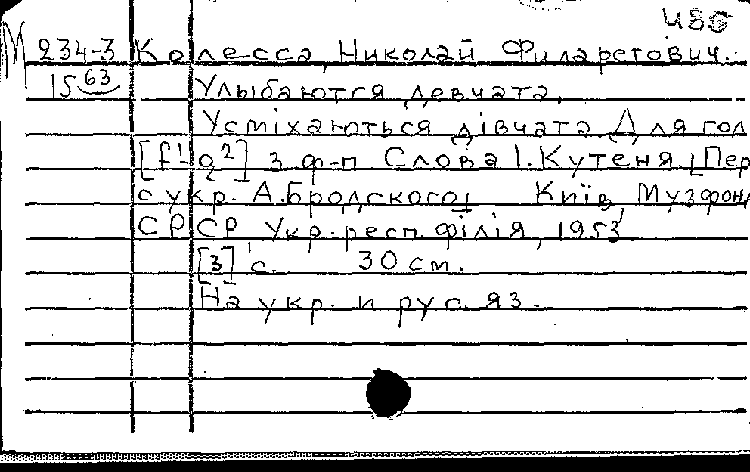 480
М 234-3 Колесса, Николай Филаретович.
15 63 Улыбаются девчата.
Усміхаються дівчата. Для гол
[f¹-g²] з ф-п. Слова І. Кутеня [Пер.
с укр. А. Бродского] Київ, Музфонд
СРСР Укр. респ. філія, 1953
[3] с. 30 см.
На укр. и рус. яз.